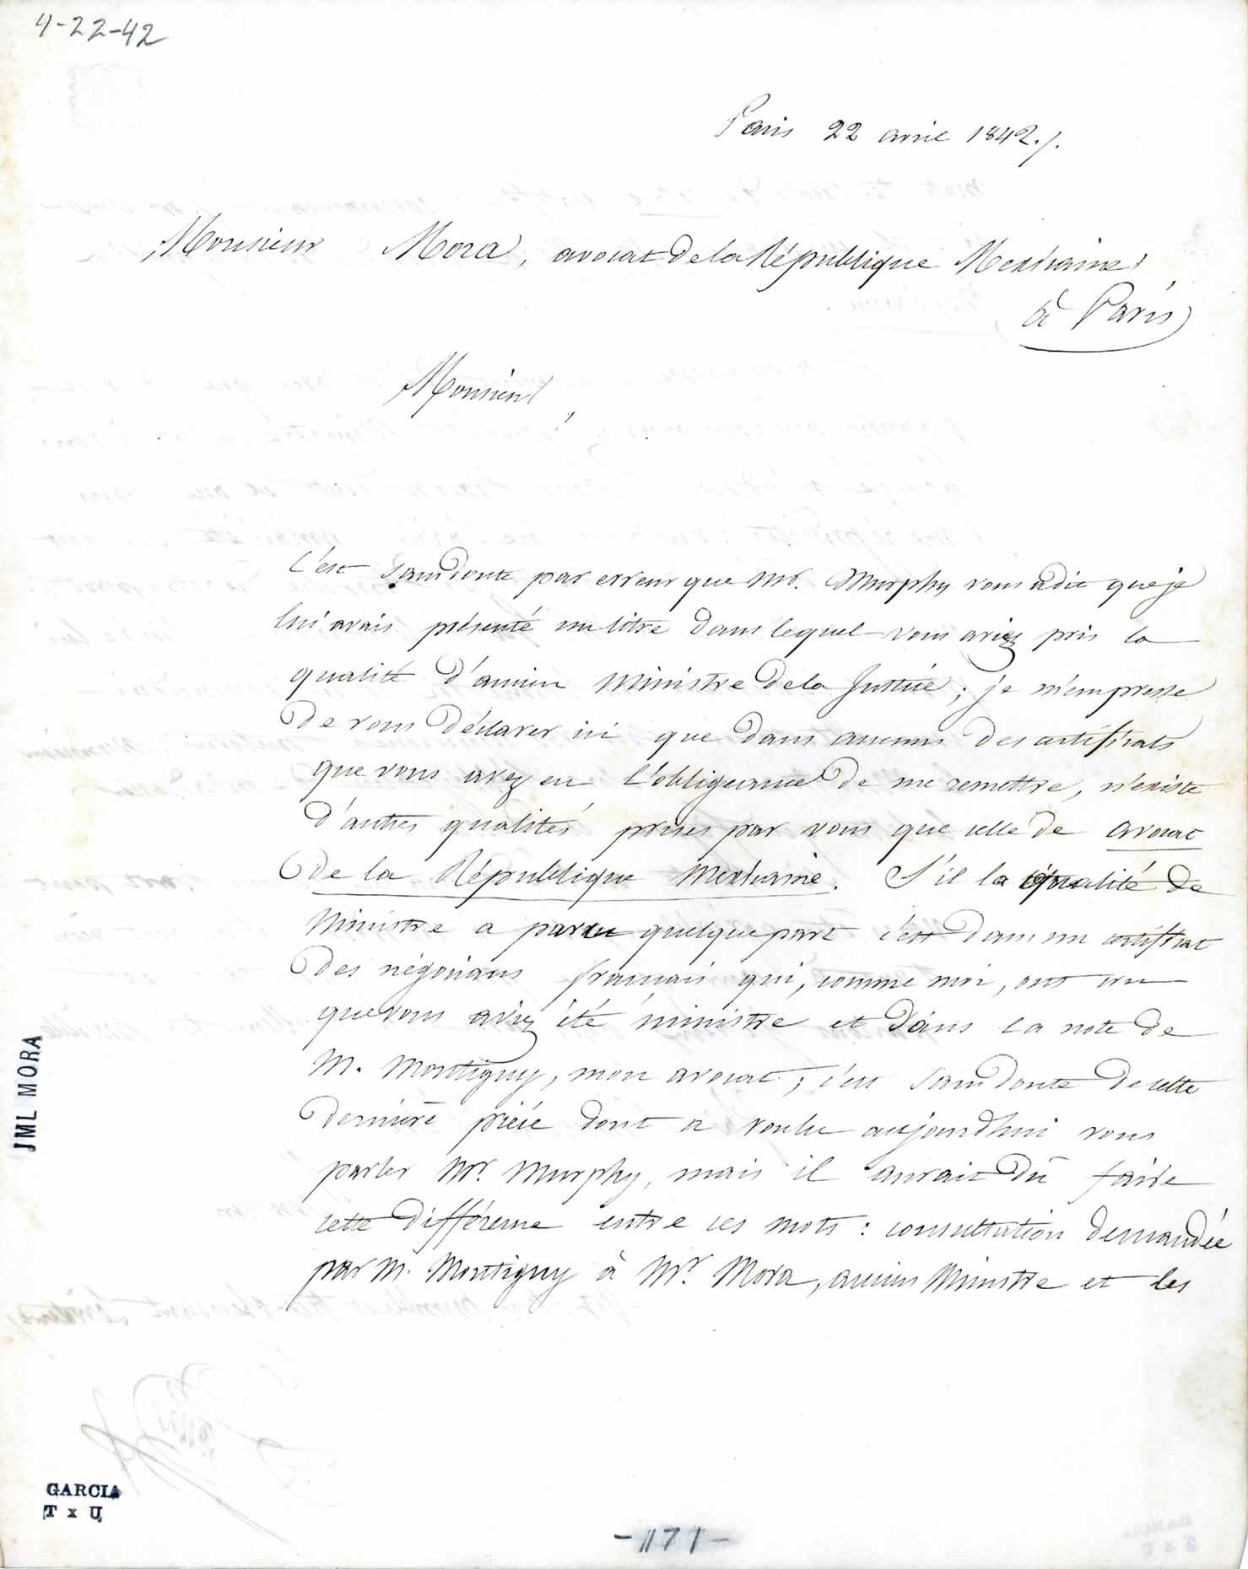 4-22-42
Paris 22 avril 1842./.
Monsieur Mora, avocat de la République Mexicaine
à Paris
Monsieur,
C'est sans doute par erreur que Mr. Murphy vous a dit que je
lui avais présenté un titre dans lequel vous aviez pris la
qualité d'ancien Ministre de la Justice; je m'empresse
de vous déclarer ici que dans aucuns des certificats
que vous avez eu l'obligeance de me remettre, n'existe
d'autres qualités prises par vous que celle de avocat
de la République Mexicaine. S'il la qualité de
Ministre a paru quelque part c'est dans un certificat
des négocians français qui, comme moi, ont cru
que vous aviez été ministre et dans la note de
M. Montigny, mon avocat; c'est sans doute de cette
dernière pièce dont a voulu aujourdhui vous
parler Mr. Murphy, mais il aurait dû faire
cette différence entre ces mots: consultation demandée
par M. Montigny à Mr. Mora, ancien Ministre et les
JML MORA
GARCIA
T x U
-1171-